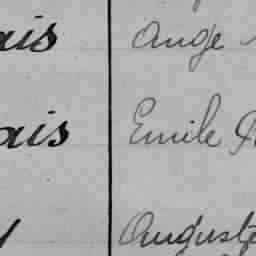 ais Ange
ais Emile
Auguste